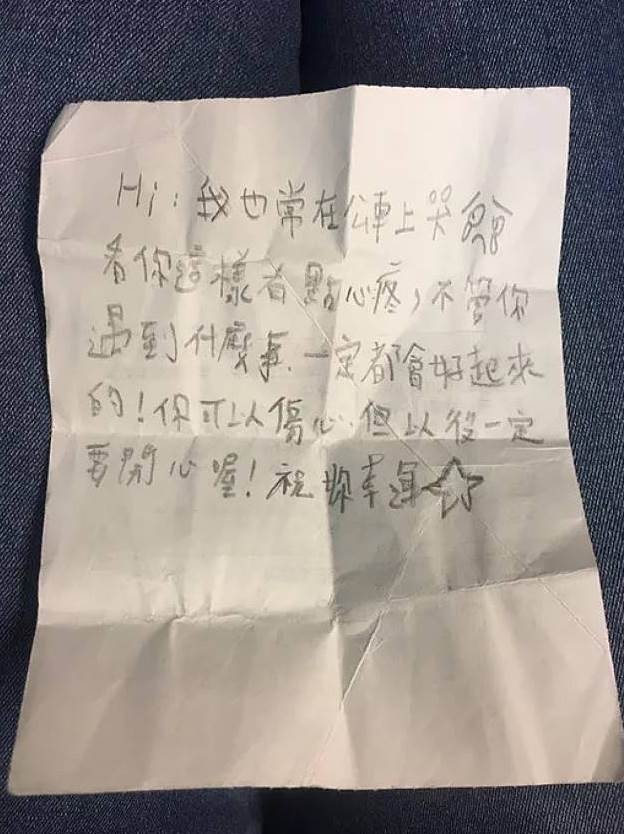 Hi：我也常在公車上哭
看你這樣有點心疼，不管你
遇到什麼事，一定都會好起來
的！你可以傷心，但以後一定
要開心喔！祝妳幸運☆